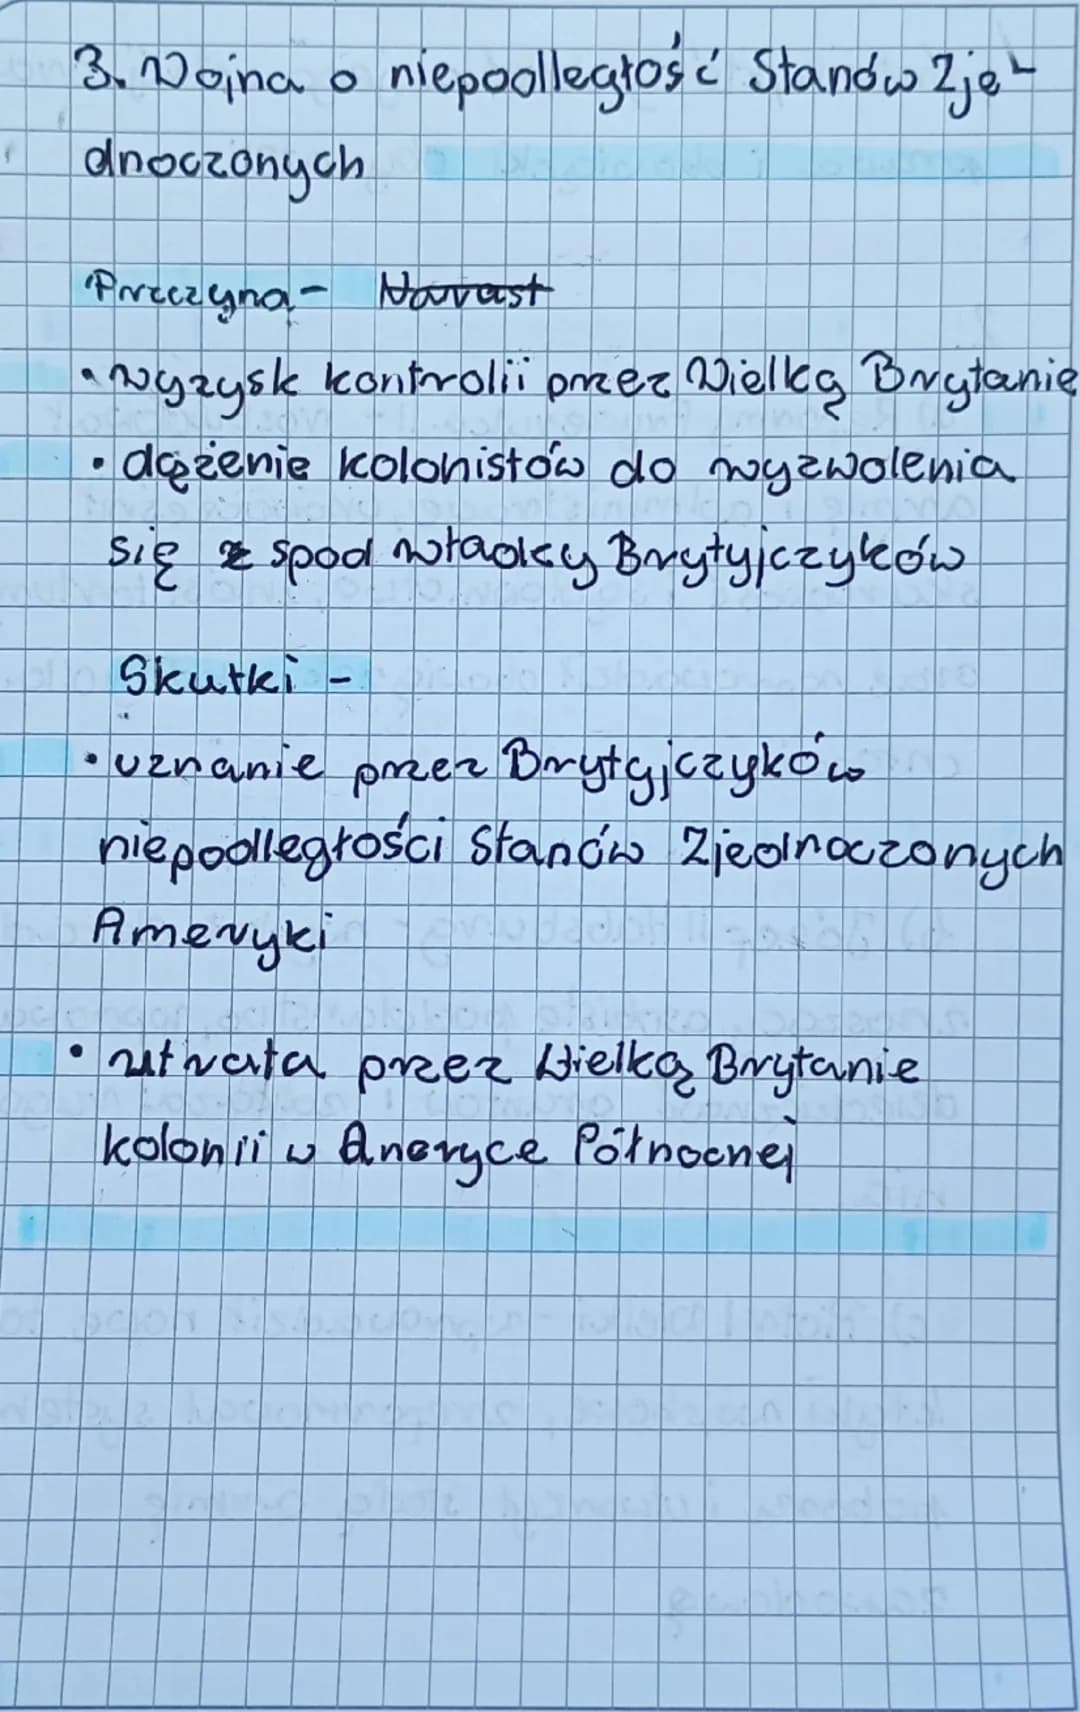 3. Wojna o niepodległość Stanów Zje-
dnoczonych
Przczyna - Navast
• wyzysk kontrolii przez Wielką Brytanię
• dążenie kolonistów do wyzwolenia
się z spod władzy Brytyjczyków
Skutki -
• uznanie przez Brytyjczyków
niepodległości Stanów Zjednoczonych
Ameryki
• utrata przez Wielką Brytanie
kolonii w Ameryce Północnej